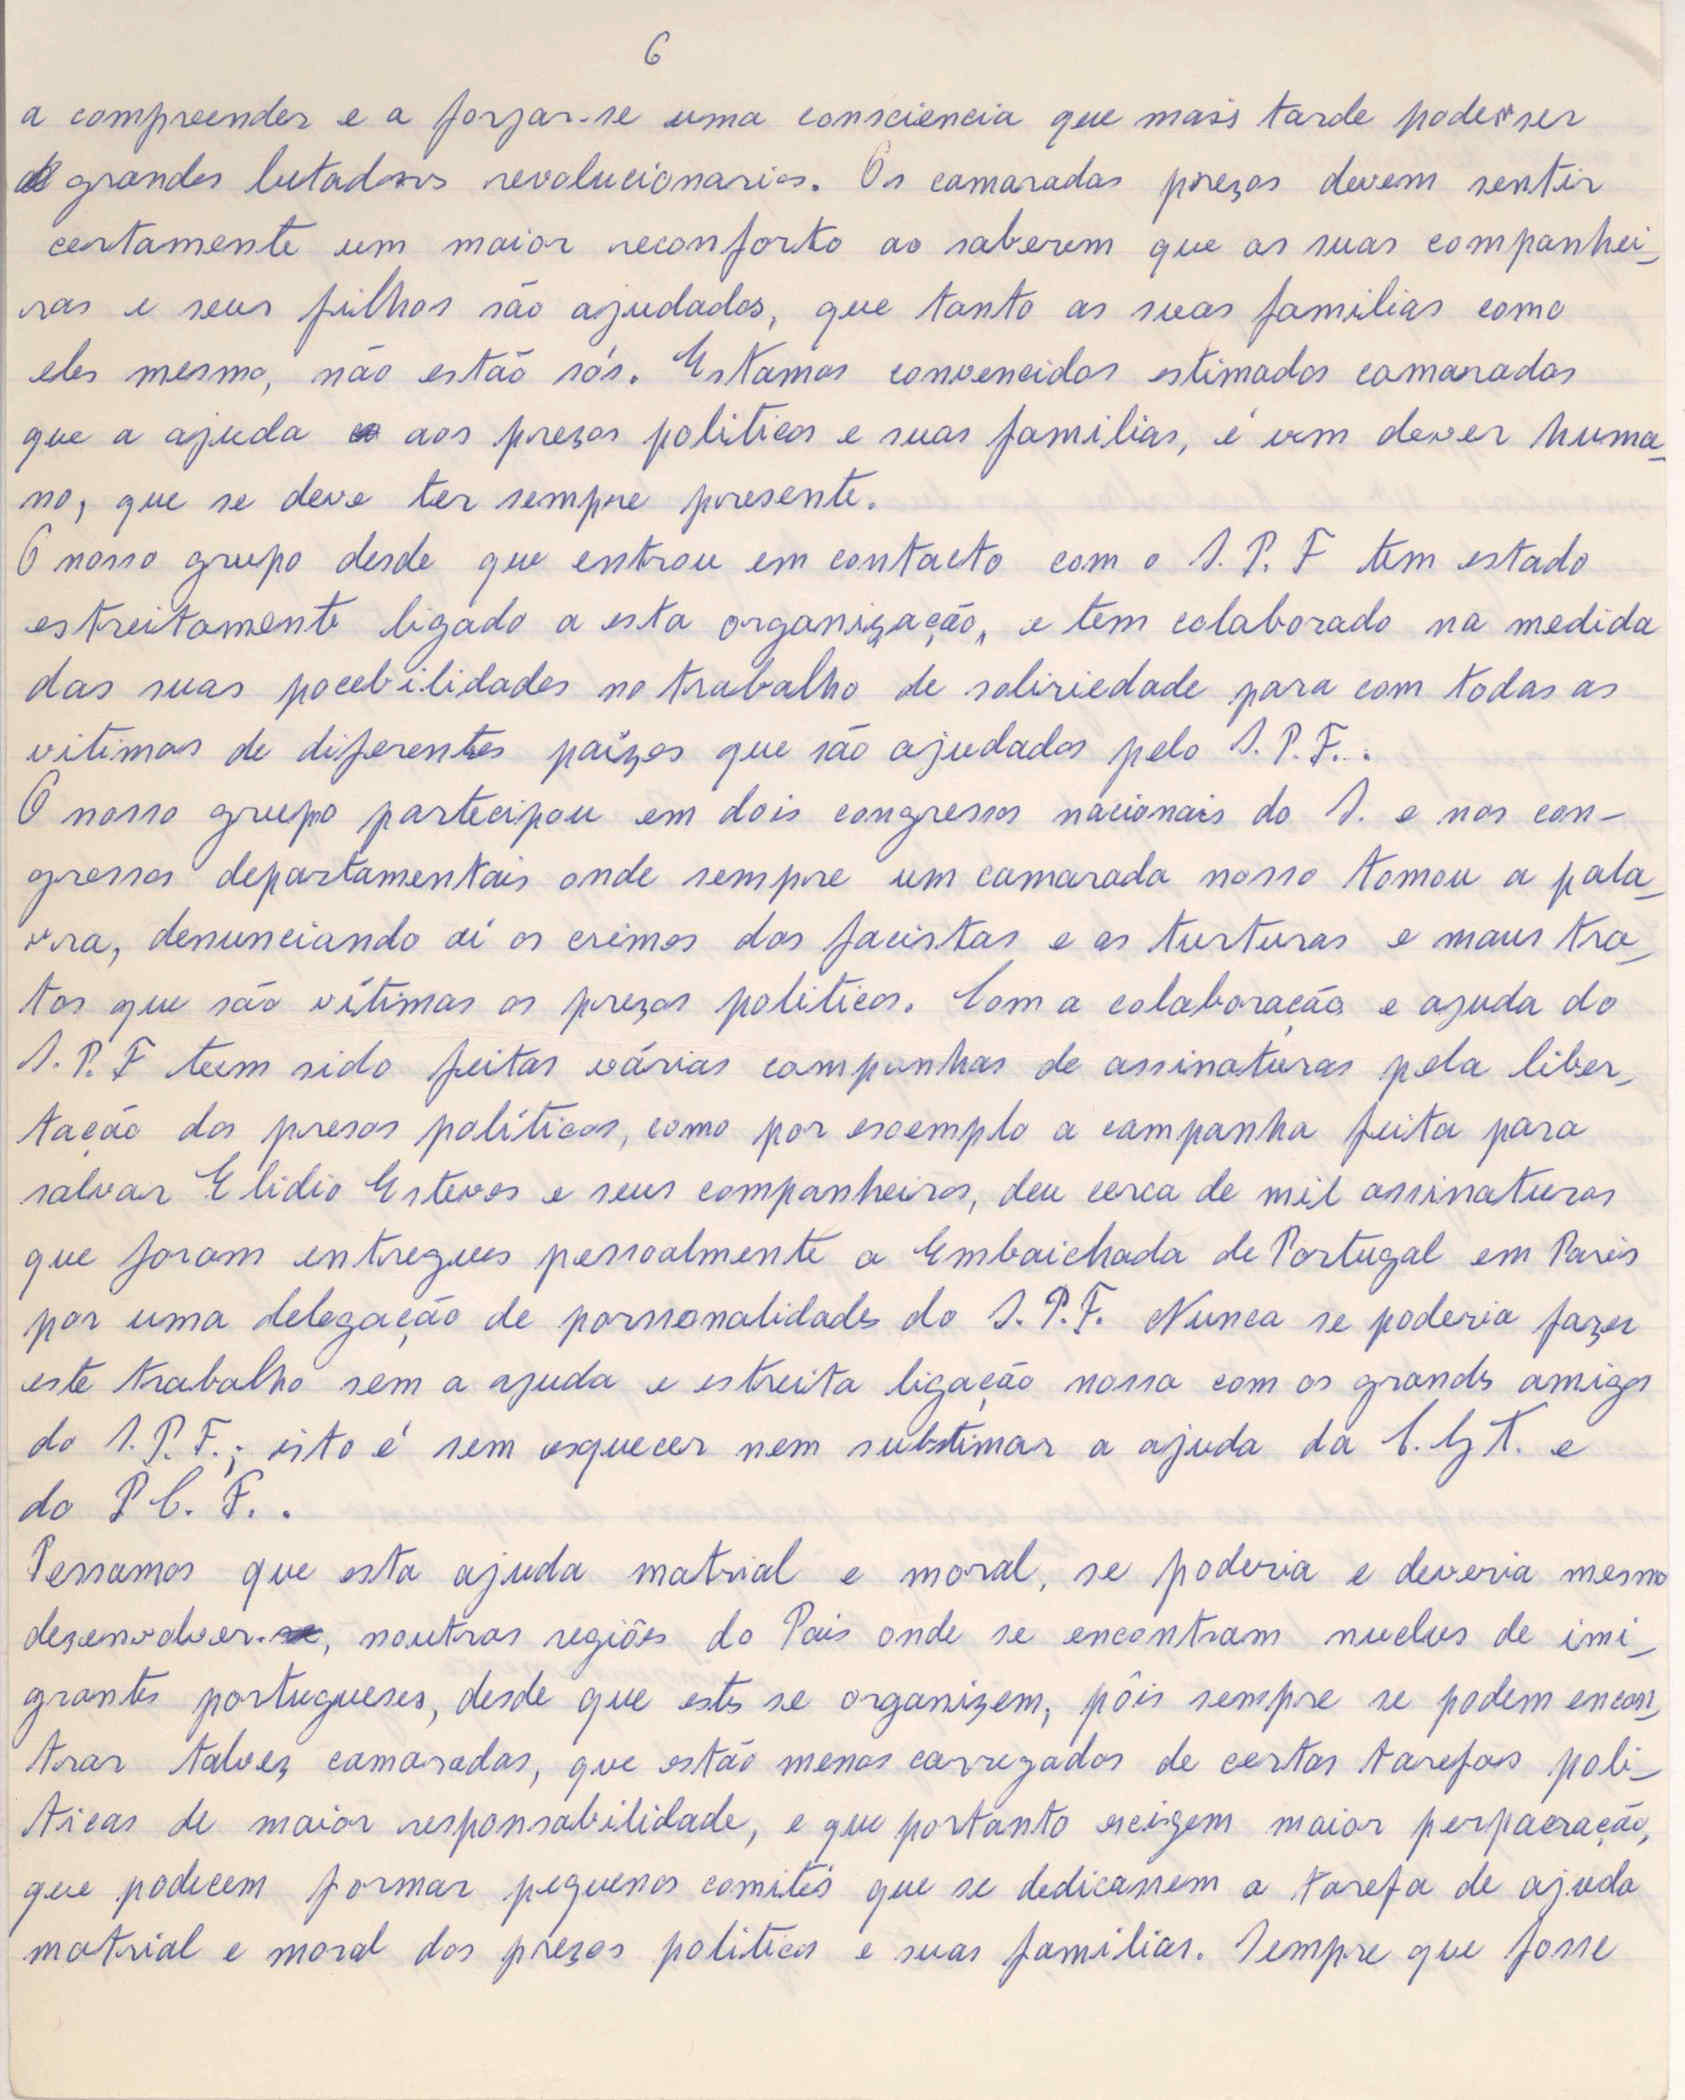 6
a compreender e a forjar-se uma consciencia que mais tarde poder ser
grandes lutadores revolucionarios. Os camaradas prezos devem sentir
certamente um maior reconforto ao saberem que as suas companhei-
ras e seus filhos são ajudados, que tanto as suas familias como
eles mesmo, não estão sós. Estamos convencidos estimados camaradas
que a ajuda aos prezos politicos e suas familias, é um dever huma-
no, que se deve ter sempre presente.
O nosso grupo desde que entrou em contacto com o S. P. F tem estado
estreitamente ligado a esta organização, e tem colaborado na medida
das suas pocebilidades no trabalho de soliriedade para com todas as
vitimas de diferentes paízes que são ajudados pelo S. P. F..
O nosso grupo partecipou em dois congressos nacionais do S. e nos con-
gressos departamentais onde sempre um camarada nosso tomou a pala-
vra, denunciando aí os crimes dos facistas e as turturas e maus tra-
tos que são vítimas os prezos politicos. Com a colaboração e ajuda do
S. P. F teem sido feitas várias companhas de assinaturas pela liber-
tação dos presos políticos, como por escemplo a campanha feita para
salvar Elidio Esteves e seus companheiros, deu cerca de mil assinaturas
que foram entregues pessoalmente a Embaichada de Portugal em Paris
por uma delegação de porsonalidades do S. P. F. Nunca se poderia fazer
este trabalho sem a ajuda e estreita ligação nossa com os grandes amigos
do S. P. F.; isto é sem esquecer nem substimar a ajuda da C. G T. e
do P C. F..
Penssamos que esta ajuda matrial e moral, se poderia e deveria mesmo
desenvolver, noutras regiões do Pais onde se encontram nuclus de imi-
grantes portugueses, desde que estes se organizem, pôis sempre se podem encon-
trar talvez camaradas, que estão menos carregados de certas tarefas poli-
ticas de maior responsabilidade, e que portanto ecigem maior perpacração,
que podecem formar pequenos comités que se dedicassem a tarefa de ajuda
matrial e moral dos prezos politicos e suas familias. Sempre que fosse